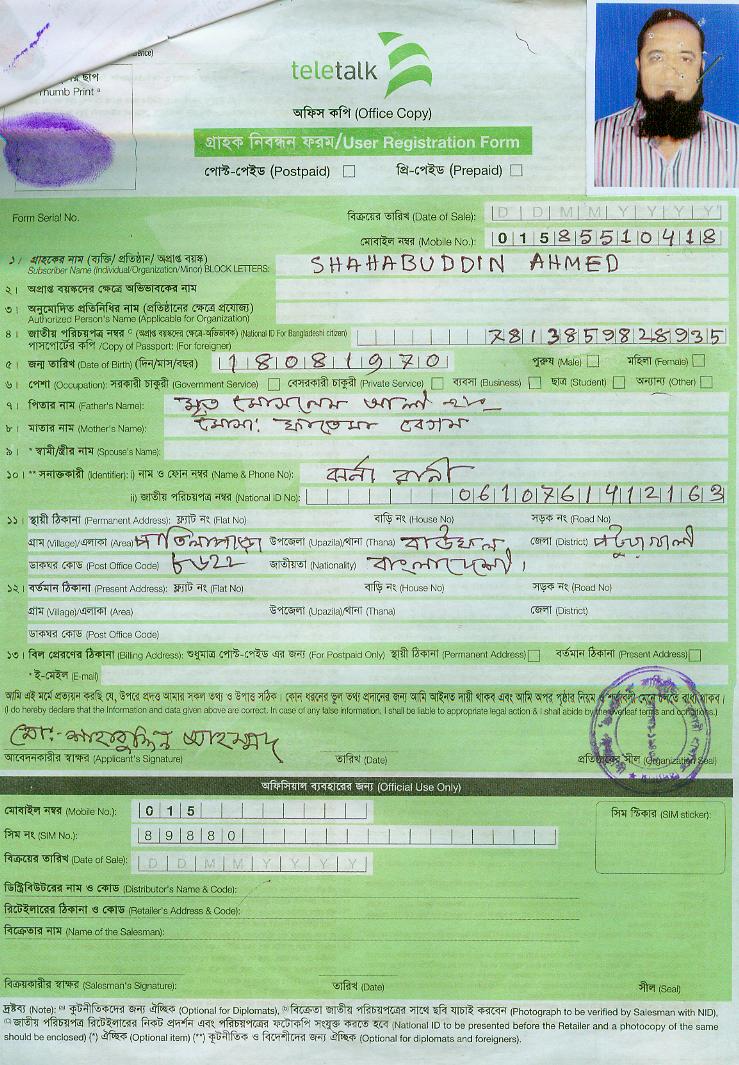 dence)
র ছাপ
humb Print *
teletalk
অফিস কপি (Office Copy)
গ্রাহক নিবন্ধন ফরম/User Registration Form
পোস্ট-পেইড (Postpaid) প্রি-পেইড (Prepaid)
Form Serial No. বিক্রয়ের তারিখ (Date of Sale): D D M M Y Y Y Y
মোবাইল নম্বর (Mobile No.): 0 1 5 8 5 5 1 0 4 1 8
১। গ্রাহকের নাম (ব্যক্তি/ প্রতিষ্ঠান/ অপ্রাপ্ত বয়স্ক)
Subscriber Name (Individual/Organization/Minor) BLOCK LETTERS: SHAHABUDDIN AHMED
২। অপ্রাপ্ত বয়স্কদের ক্ষেত্রে অভিভাবকের নাম
৩। অনুমোদিত প্রতিনিধির নাম (প্রতিষ্ঠানের ক্ষেত্রে প্রযোজ্য)
Authorized Person's Name (Applicable for Organization)
৪। জাতীয় পরিচয়পত্র নম্বর ᶜ (অপ্রাপ্ত বয়স্কদের ক্ষেত্রে-অভিভাবক) (National ID For Bangladeshi citizen)
পাসপোর্টের কপি /Copy of Passport: (For foreigner) 7 8 1 3 8 5 9 8 2 8 9 3 5
৫। জন্ম তারিখ (Date of Birth) (দিন/মাস/বছর) 1 8 0 8 1 9 7 0 পুরুষ (Male) মহিলা (Female)
৬। পেশা (Occupation): সরকারী চাকুরী (Government Service) বেসরকারী চাকুরী (Private Service) ব্যবসা (Business) ছাত্র (Student) অন্যান্য (Other)
৭। পিতার নাম (Father's Name): মৃত মোসলেম আলী
৮। মাতার নাম (Mother's Name): মোসা: ফাতেমা বেগম
৯। * স্বামী/স্ত্রীর নাম (Spouse's Name):
১০। ** সনাক্তকারী (Identifier): i) নাম ও ফোন নম্বর (Name & Phone No): ঝর্না রানী
ii) জাতীয় পরিচয়পত্র নম্বর (National ID No): 0 6 1 0 7 6 1 4 1 2 1 6 3
১১। স্থায়ী ঠিকানা (Permanent Address): ফ্ল্যাট নং (Flat No) বাড়ি নং (House No) সড়ক নং (Road No)
গ্রাম (Village)/এলাকা (Area) উপজেলা (Upazila)/থানা (Thana) বাউফল জেলা (District) পটুয়াখালী
ডাকঘর কোড (Post Office Code) ৮৬২২ জাতীয়তা (Nationality) বাংলাদেশী।
১২। বর্তমান ঠিকানা (Present Address): ফ্ল্যাট নং (Flat No) বাড়ি নং (House No) সড়ক নং (Road No)
গ্রাম (Village)/এলাকা (Area) উপজেলা (Upazila)/থানা (Thana) জেলা (District)
ডাকঘর কোড (Post Office Code)
১৩। বিল প্রেরণের ঠিকানা (Billing Address): শুধুমাত্র পোস্ট-পেইড এর জন্য (For Postpaid Only) স্থায়ী ঠিকানা (Permanent Address) বর্তমান ঠিকানা (Present Address)
* ই-মেইল (E-mail)
আমি এই মর্মে প্রত্যয়ন করছি যে, উপরে প্রদত্ত আমার সকল তথ্য ও উপাত্ত সঠিক। কোন ধরনের ভুল তথ্য প্রদানের জন্য আমি আইনত দায়ী থাকব এবং আমি অপর পৃষ্ঠার নিয়ম ও শর্তাবলী মেনে চলতে বাধ্য থাকব।
(I do hereby declare that the Information and data given above are correct. In case of any false information, I shall be liable to appropriate legal action & I shall abide by the overleaf terms and conditions.)
মো: শাহাবুদ্দিন আহম্মদ
আবেদনকারীর স্বাক্ষর (Applicant's Signature) তারিখ (Date) প্রতিষ্ঠানের সীল (Organization Seal)
অফিসিয়াল ব্যবহারের জন্য (Official Use Only)
মোবাইল নম্বর (Mobile No.): 0 1 5 সিম স্টিকার (SIM sticker):
সিম নং (SIM No.): 8 9 8 8 0
বিক্রয়ের তারিখ (Date of Sale): D D M M Y Y Y Y
ডিস্ট্রিবিউটরের নাম ও কোড (Distributor's Name & Code):
রিটেইলারের ঠিকানা ও কোড (Retailer's Address & Code):
বিক্রেতার নাম (Name of the Salesman):
বিক্রয়কারীর স্বাক্ষর (Salesman's Signature): তারিখ (Date) সীল (Seal)
দ্রষ্টব্য (Note): ⁽ᵃ⁾ কূটনীতিকদের জন্য ঐচ্ছিক (Optional for Diplomats), ⁽ᵇ⁾ বিক্রেতা জাতীয় পরিচয়পত্রের সাথে ছবি যাচাই করবেন (Photograph to be verified by Salesman with NID),
⁽ᶜ⁾ জাতীয় পরিচয়পত্র রিটেইলারের নিকট প্রদর্শন এবং পরিচয়পত্রের ফটোকপি সংযুক্ত করতে হবে (National ID to be presented before the Retailer and a photocopy of the same
should be enclosed) (*) ঐচ্ছিক (Optional item) (**) কূটনীতিক ও বিদেশীদের জন্য ঐচ্ছিক (Optional for diplomats and foreigners).